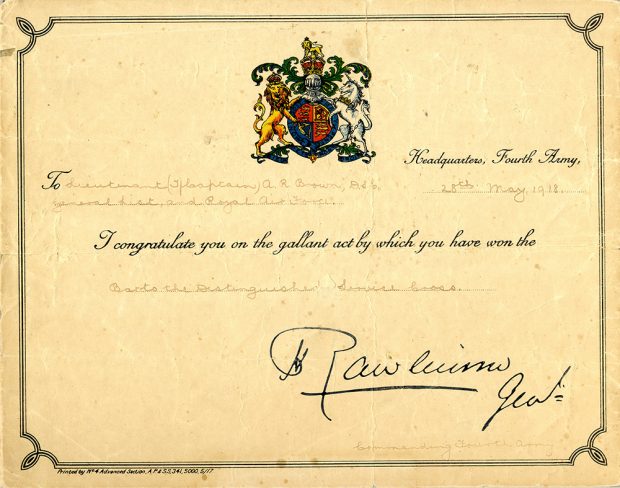 Headquarters, Fourth Army,
28th May 1918.
To Lieutenant (T/Captain) A. R. Brown, D.S.C.
General List, and Royal Air Force.
I congratulate you on the gallant act by which you have won the
Bar to the Distinguished Service Cross.
H Rawlinson
Genl.
Commanding Fourth Army
Printed by No 4 Advanced Section, A.P. & S.S. 341, 5000, 5/17.